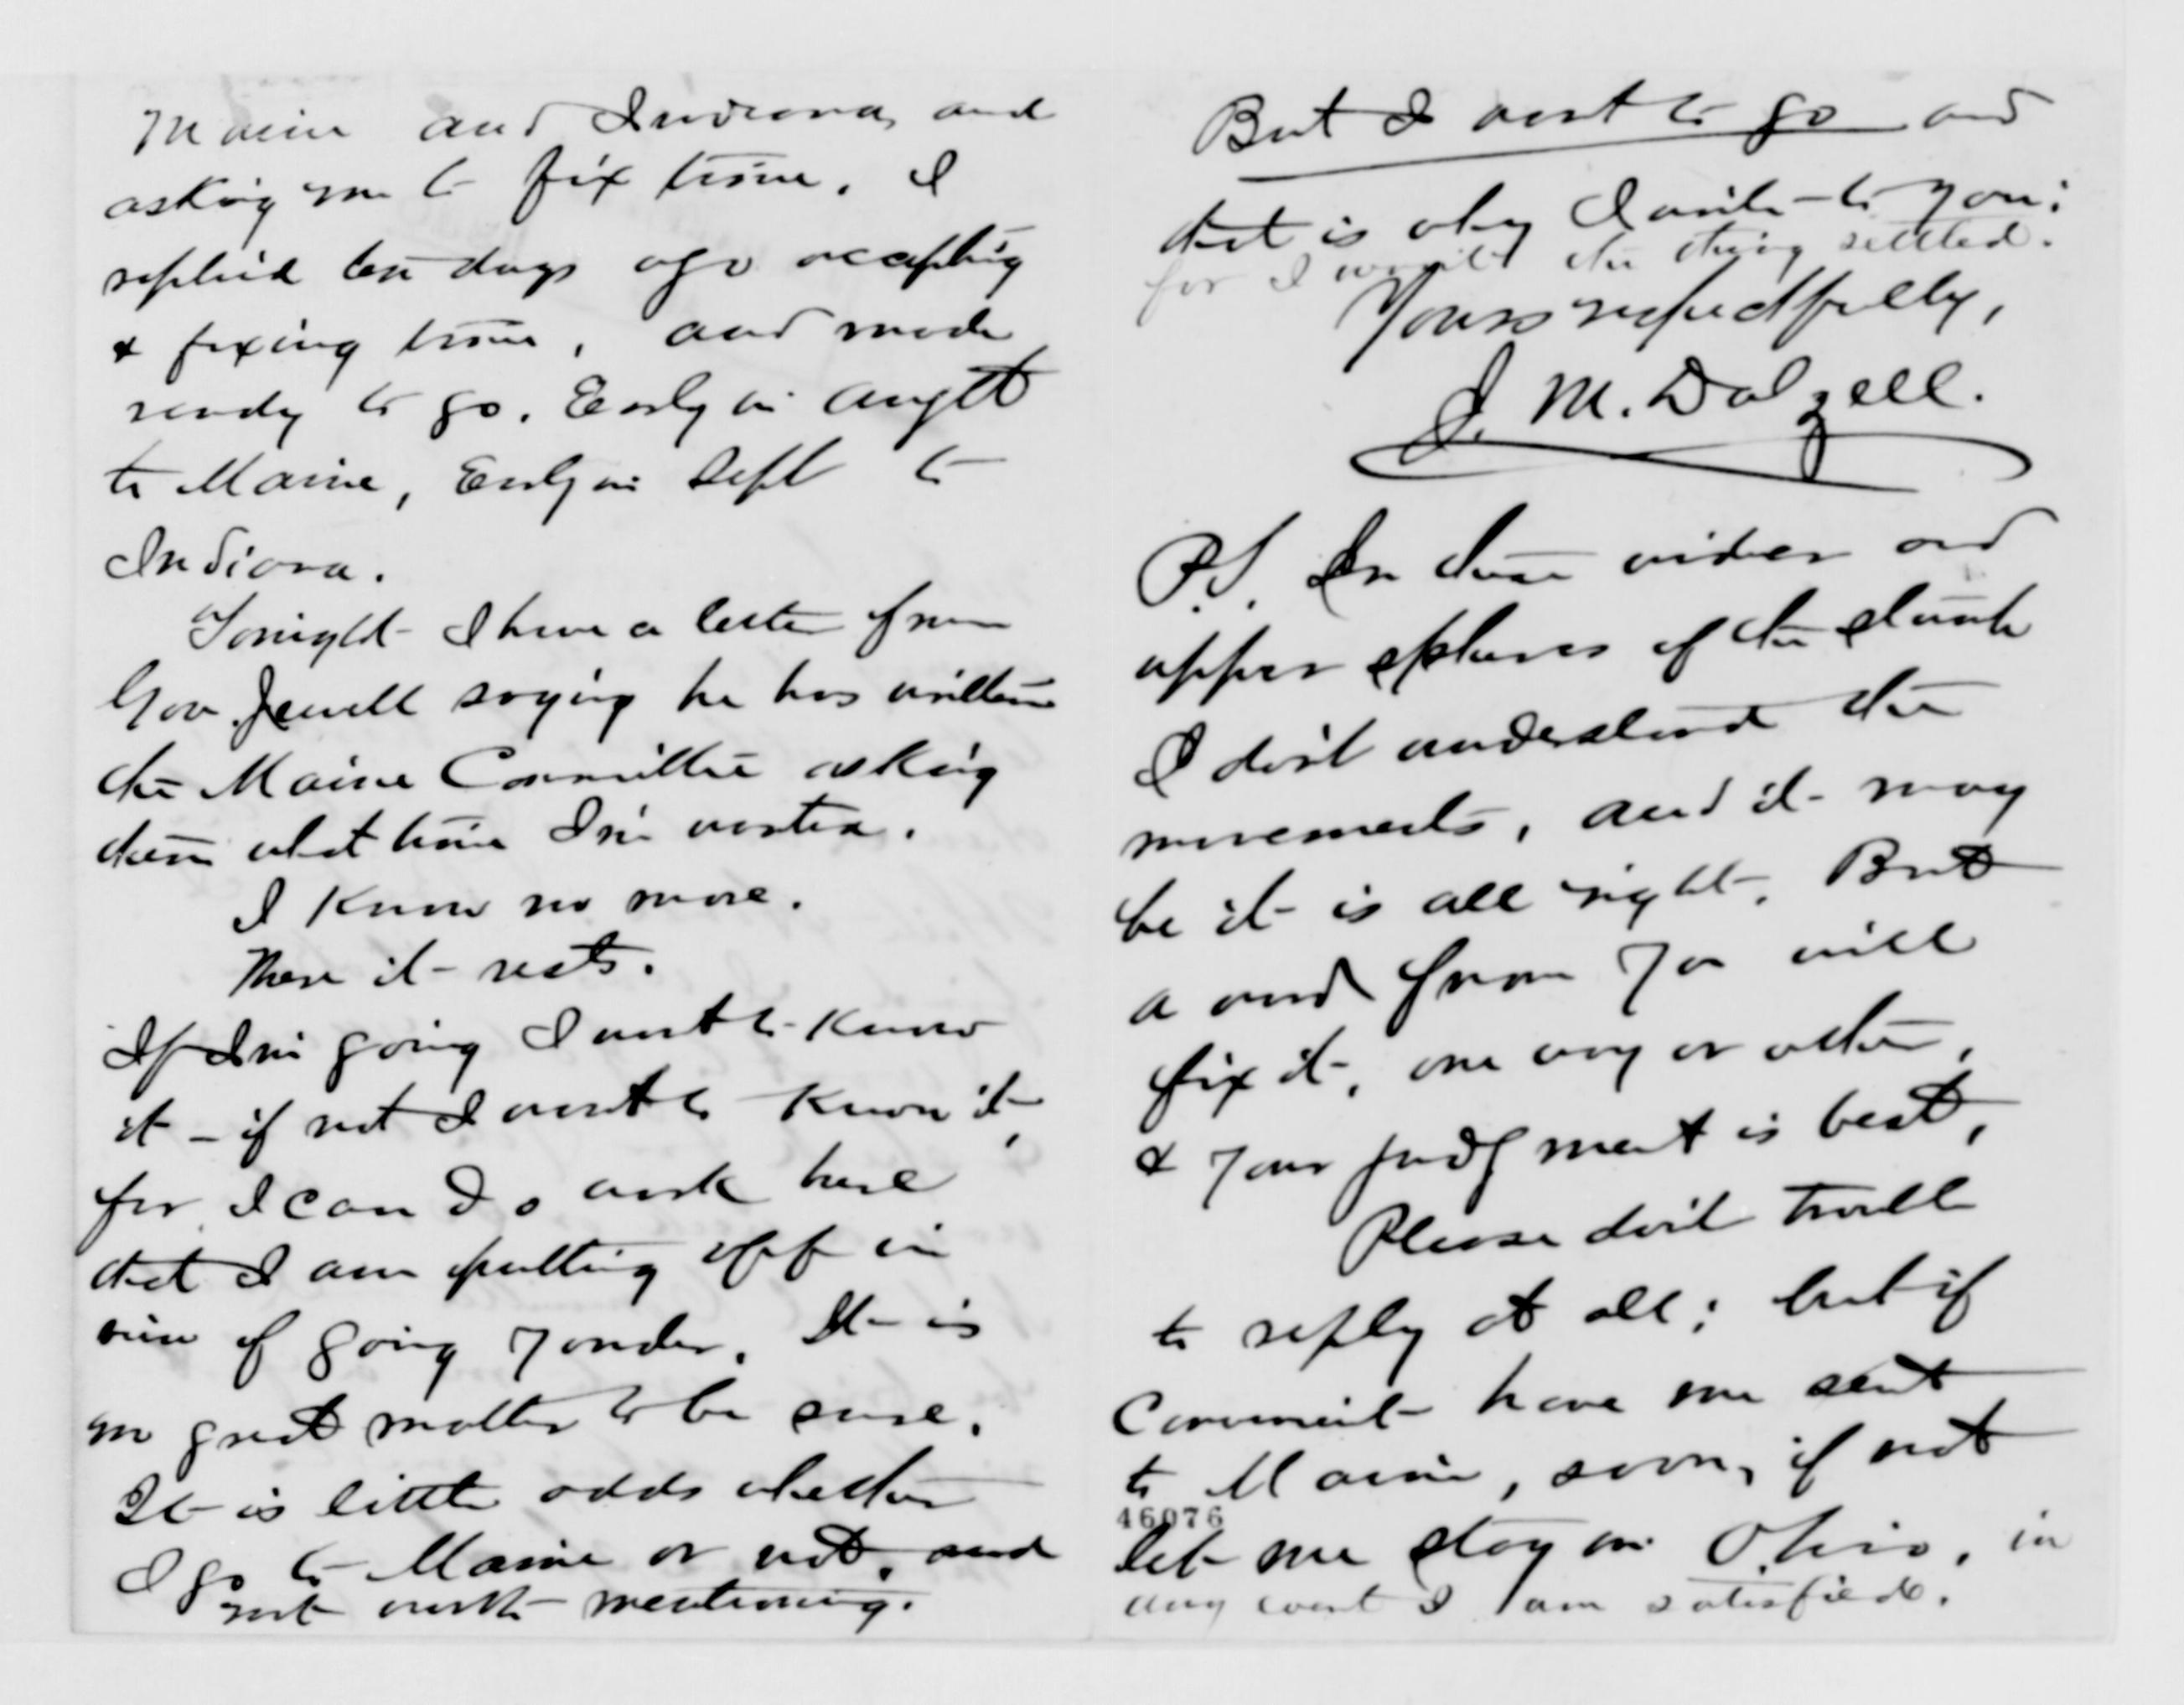 Maine and Indiana, and
asking me to fix time. I
replied ten days ago accepting
& fixing time, and made
ready to go. Early in Augst
to Maine, Early in Sept to
Indiana.
Tonight I have a letter from
Gov. Jewell saying he has written
the Maine Committee asking
them what time I'm wanted.
I know no more.
There it rests.
If I'm going I want to know
it - if not I want to know it,
for I can do work here
that I am putting off in
view of going yonder. It is
no great matter to be sure.
It is little odds whether
I go to Maine or not, and
not worth mentioning.
But I want to go and
that is why I write to you:
for I want the thing settled.
Yours respectfully,
J. M. Dalzell.
P.S. In these wider and
upper spheres of the
I don't understand the
movements, and it may
be it is all right. But
a word from you will
fix it, one way or other,
& your judgment is best,
Please don't trouble
to reply at all; but if
Convenient have me sent
to Maine, soon, if not
46076
let me stay in Ohio, in
any event I am satisfied.